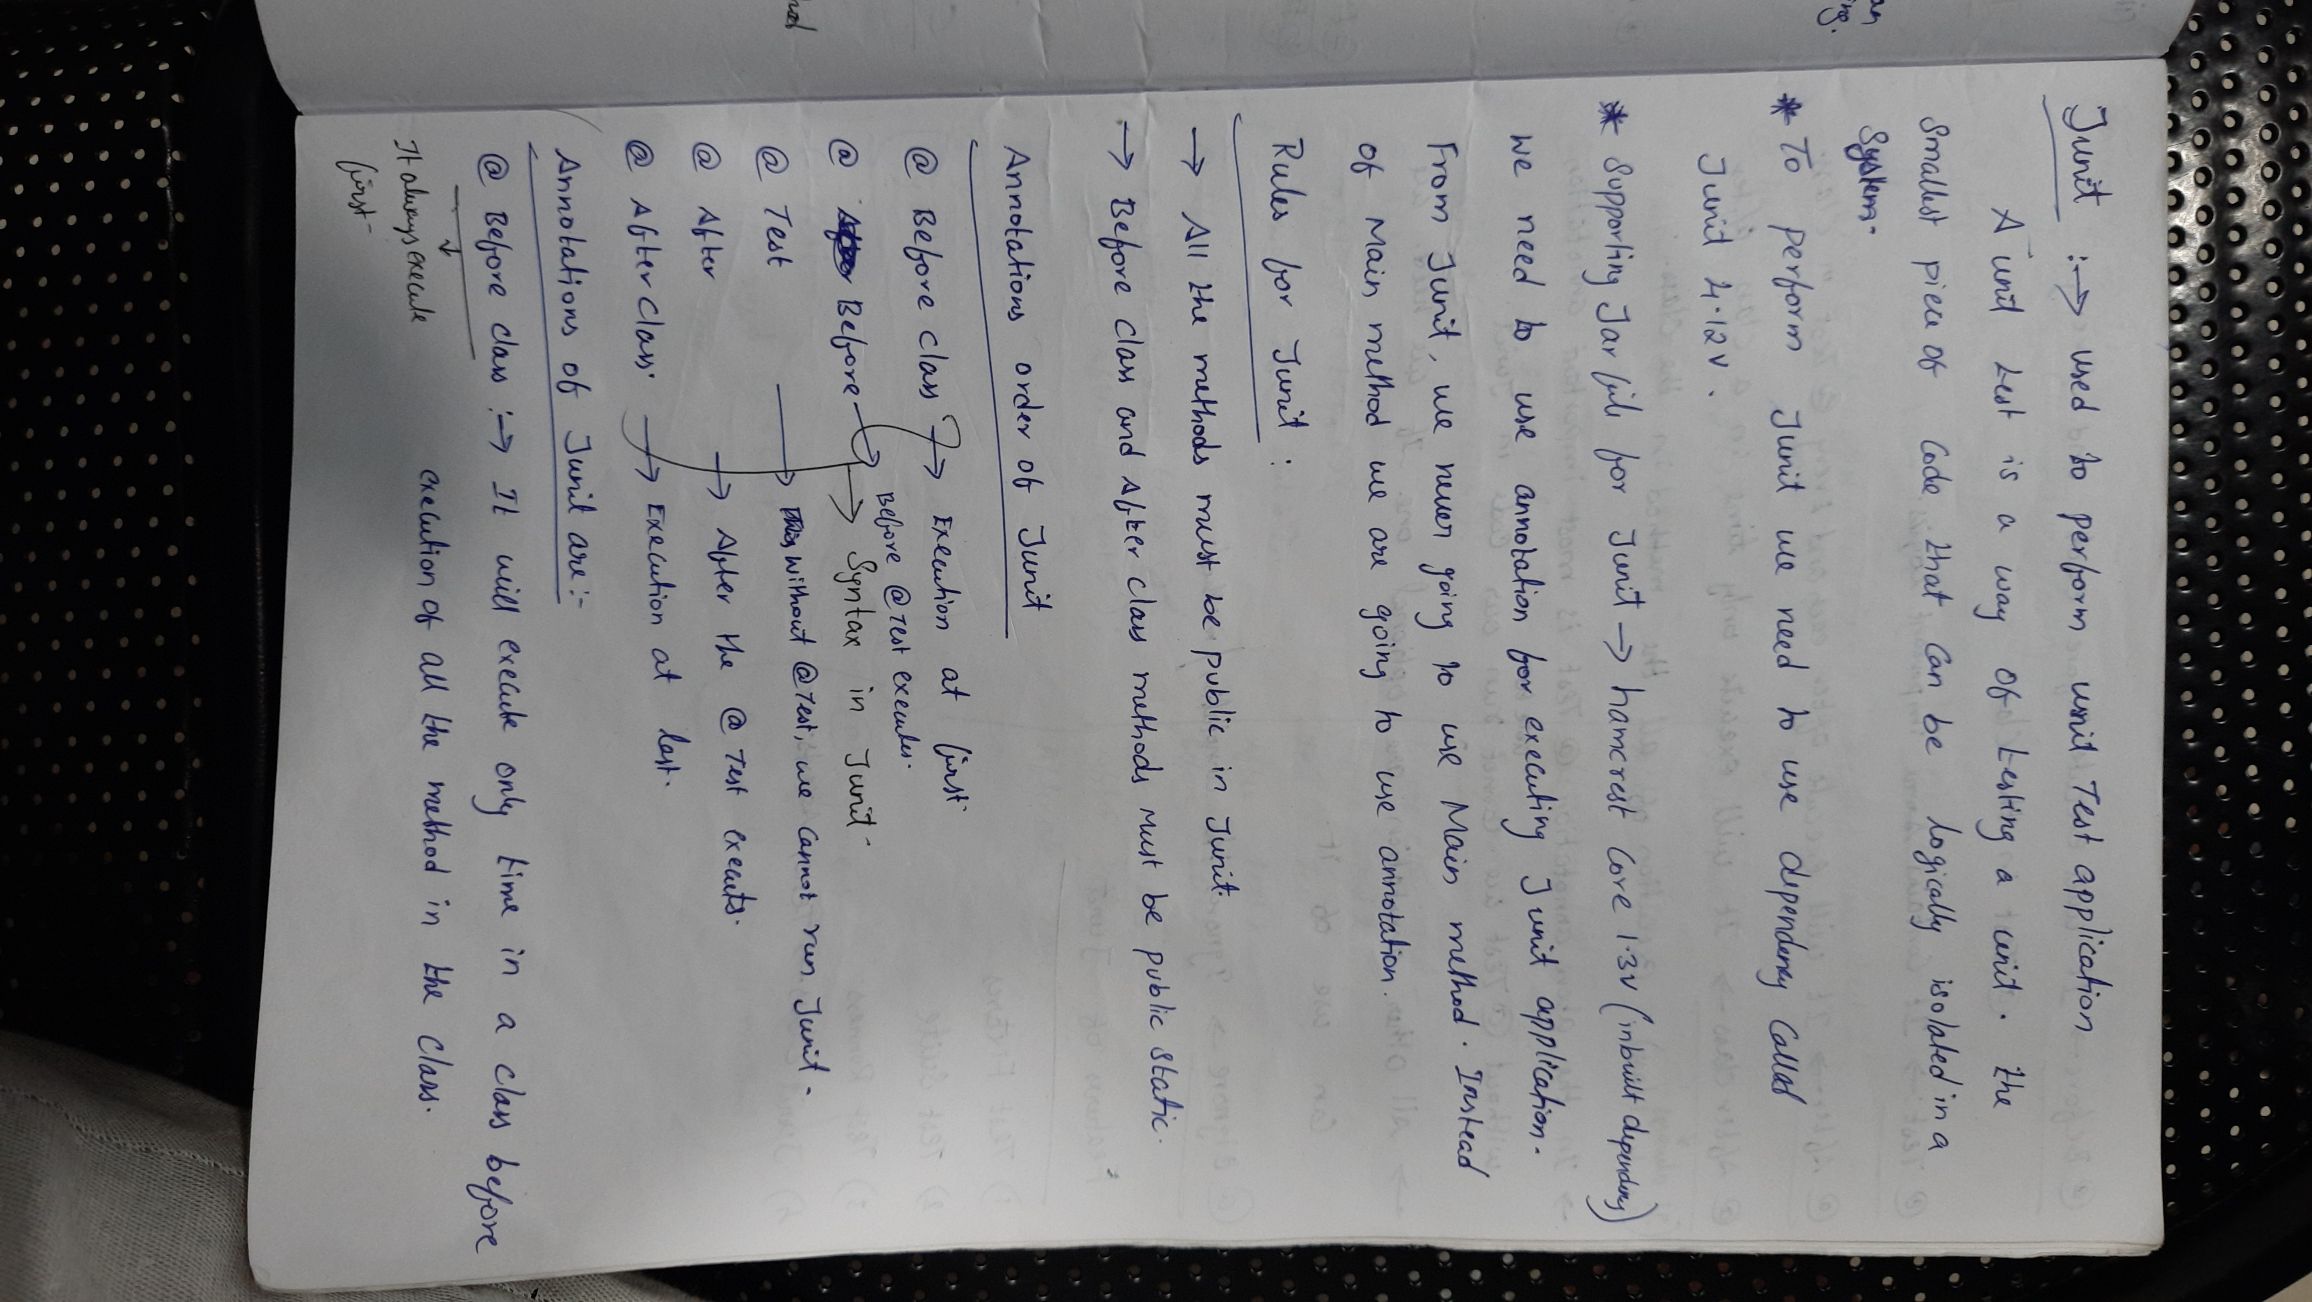 Junit :→ used to perform unit Test application
A unit test is a way of testing a unit. the
Smallest piece of Code that can be logically isolated in a
System.
* To perform Junit we need to use dependency Called
Junit 4.12v.
* Supporting Jar file for Junit → hamcrest Core 1.3v (inbuilt dependency)
we need to use annotation for executing Junit application.
From Junit, we never going to use Main method. Instead
of Main method we are going to use annotation.
Rules for Junit :
→ All the methods must be public in Junit.
→ Before class and After class methods Must be public static.
Annotations order of Junit
@ Before class → Execution at first
@ Before → Before @Test executes.
→ Syntax in Junit.
@ Test → without @Test, we cannot run Junit.
@ After → After the @ Test executs.
@ After Class. → Execution at last.
Annotations of Junit are :-
@ Before class :→ It will execute only time in a class before
execution of all the method in the class.
It always execute
first